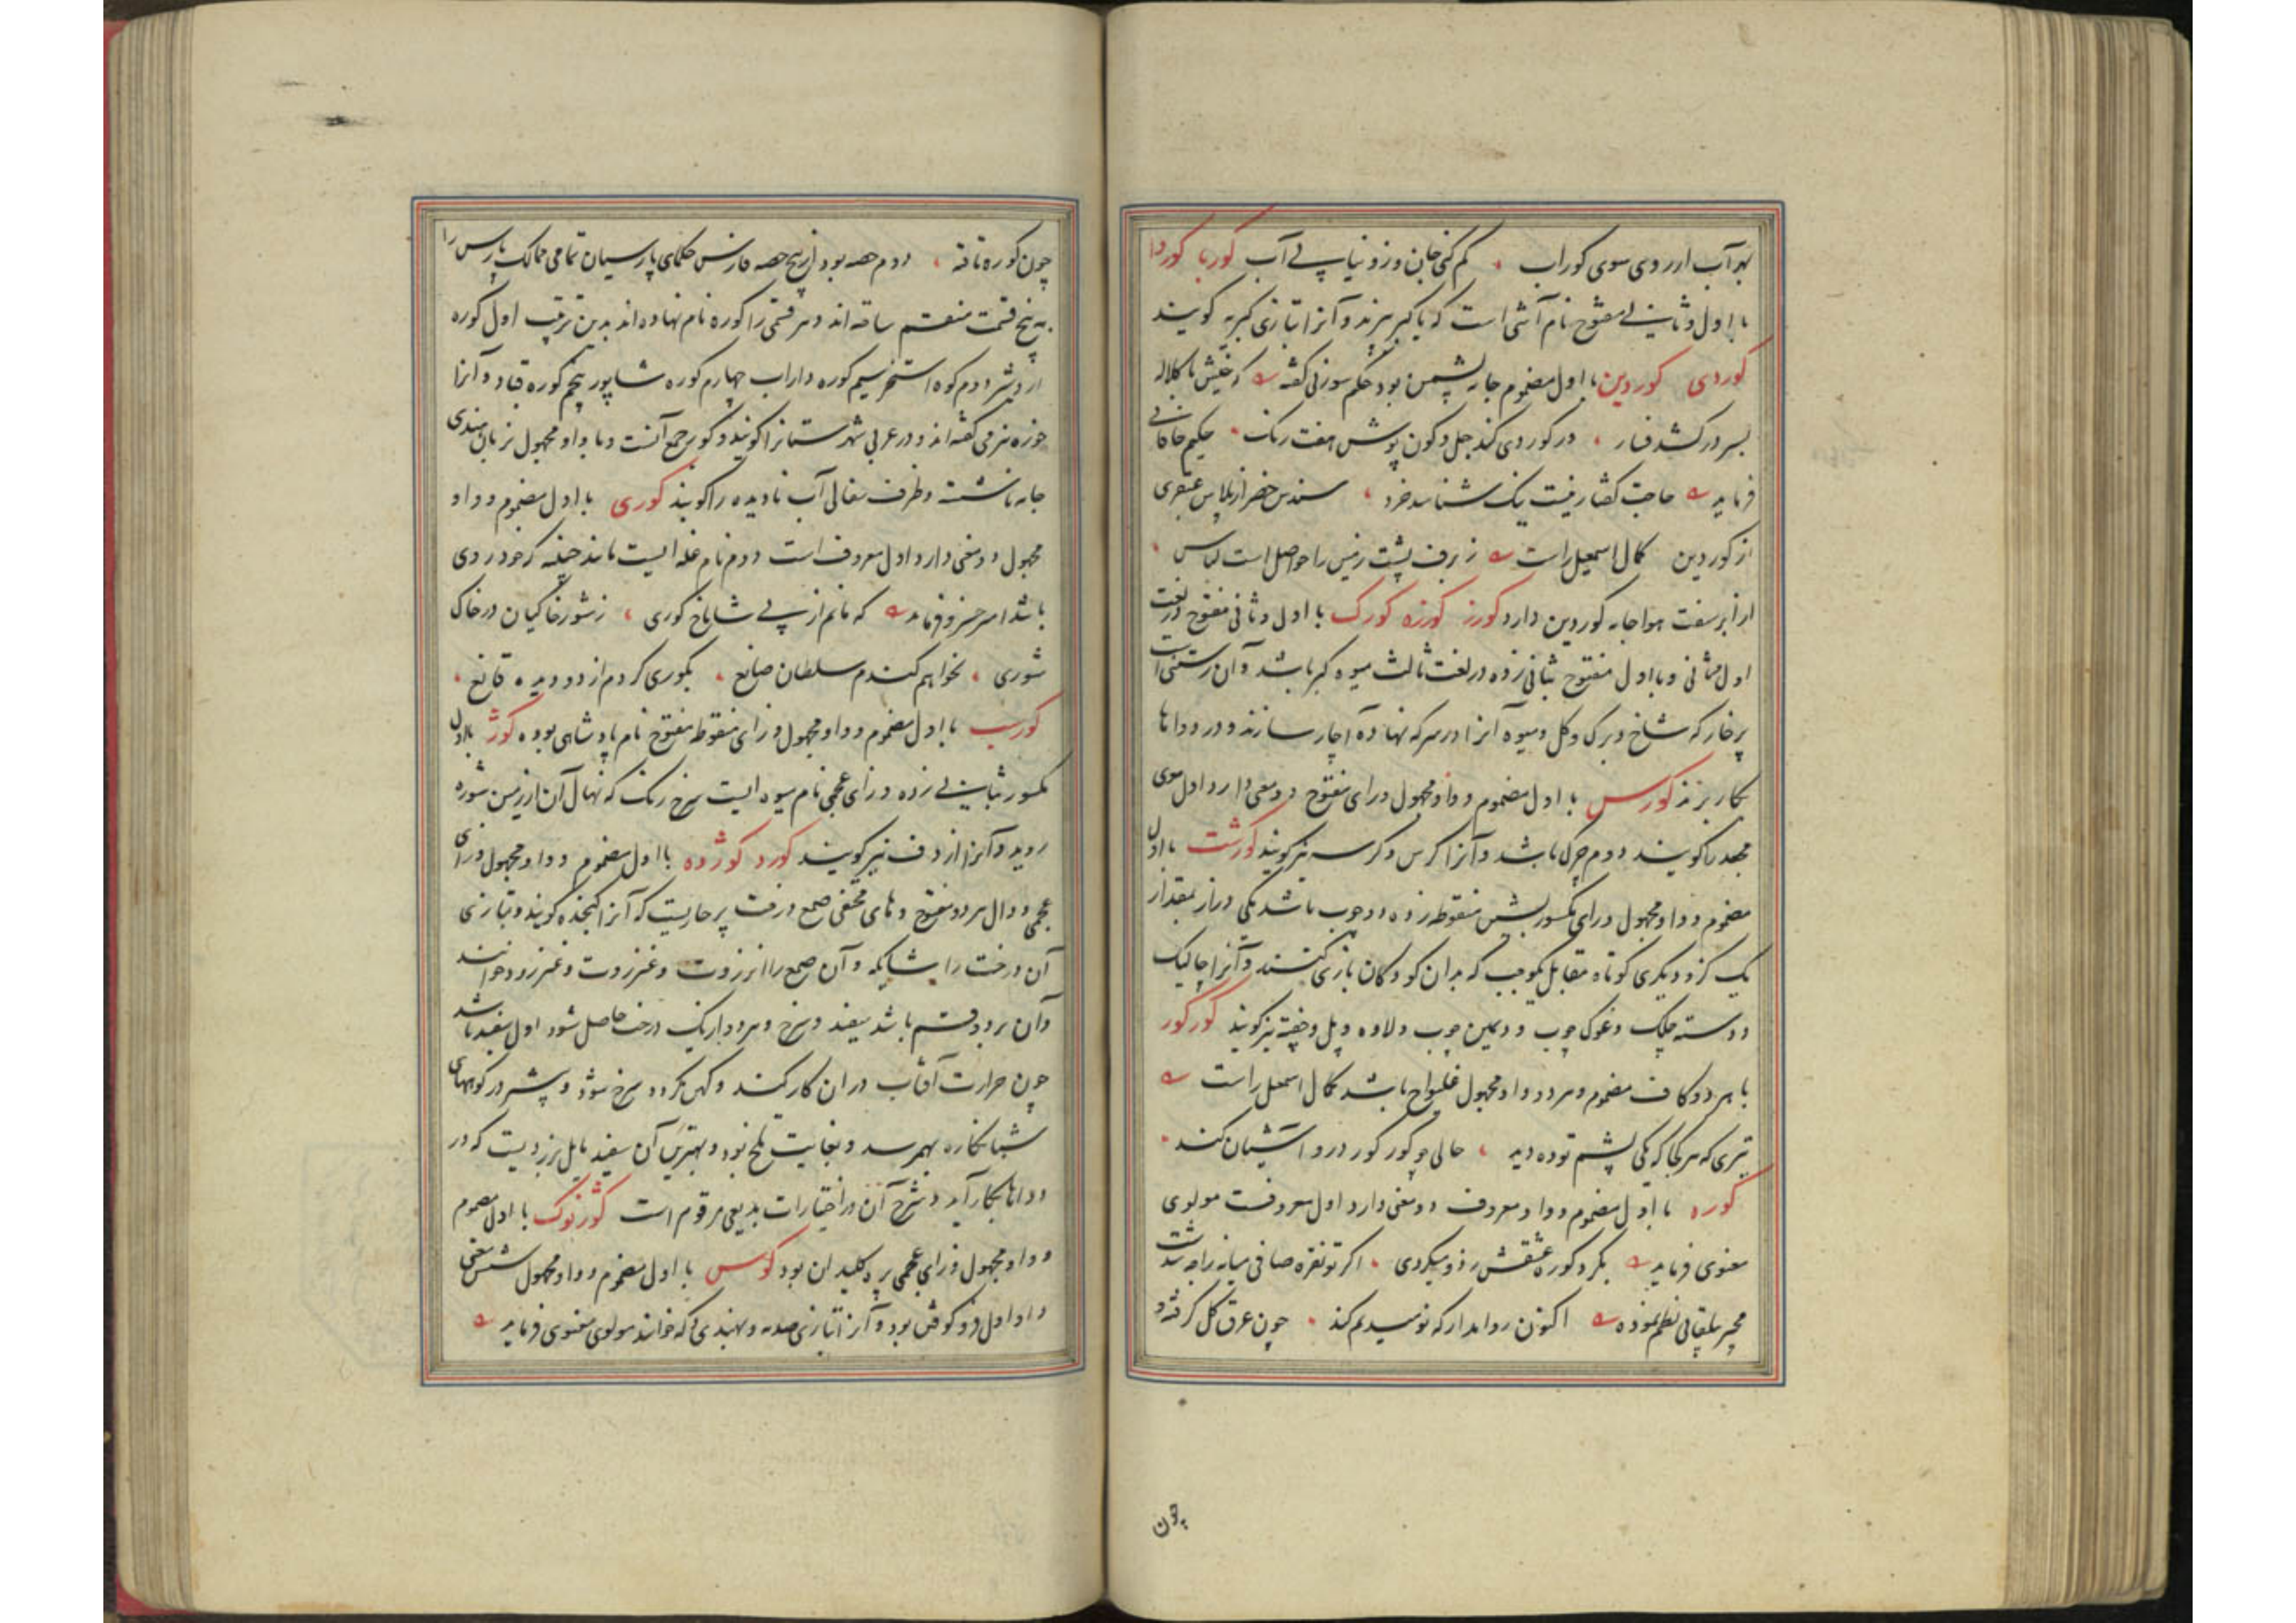 بهر آب ار روی سوی کوراب کم کنی جان وزو نیابی آب کوربا کوروا
با اول و ثانی مفتوح نام آشی است که با کبر پزند و آنرا بتازی کبریه گویند
کوردی کوردین با اول مضموم جامه پشمین بود حکیم سوزنی گفته
بسر در کشد فسار در کوردی کند جل و کون پوش هفت رنک حکیم خاقانی
فرماید حاجت گفتار نیست نیک شناسد خرد سندس خضر از پلاس عبقری
از کوردین کمال اسمعیل راست ز برف پشت زمین را حواصل است لباس
از ابر سفت هوا جامه کوردین دارد کورز کورزه کورک با اول و ثانی مفتوح در لغت
اول و ثانی و با اول مفتوح بثانی زده در لغت ثالث میوه کبر باشد و آن رستنی است
پرخار که شاخ و برک و کل و میوه آنرا در سرکه نهاده آچار سازند و در دواها
بکار برند کورس با اول مضموم و واو مجهول و رای مفتوح دو معنی دارد اول موی
مجعد را گویند دوم چرک باشد و آنرا کرس و کرسه نیز گویند کورشت با اول
مضموم و واو مجهول و رای مکسور بشین منقوط زده دو چوب باشد یکی دراز بمقدار
یک گز و دیگری کوتاه مقابل یکوجب که بدان کودکان بازی کنند و آنرا چالیک
و دسته چلک و غوک چوب و دیمین چوب و لاوه و پل و چفته نیز گویند کورکور
با هر دو کاف مضموم و هر دو واو مجهول غلیواج باشد کمال اسمعیل راست
تیزی که هر کجا که یکی پشم توده دید حالی چو کور کور درو آشیان کند
کوره با اول مضموم و واو معروف دو معنی دارد اول معروفست مولوی
معنوی فرماید بگرد کوره عشقش ز دو میکردی اگر تو نقره صافی میانه راچه شدت
مجیر بیلقانی نظم نموده اکنون روا مدار که نومیدیم کند چون عرق کل گرفته و
چون
چون کوره تافته دوم حصه بود از پنج حصه فارس حکمای پارسیان تمامی ممالک پارس را
به پنج قسمت منقسم ساخته اند و هر قسمی را کوره نام نهاده اند بدین ترتیب اول کوره
اردشیر دوم کوره استخر سیم کوره داراب چهارم کوره شاپور پنجم کوره قباد و آنرا
خوره نیز می گفته اند و در عربی شهرستانرا گویند و کور جمع آنست و با واو مجهول بزبان هندی
جامه ناشسته و ظرف سفالی آب نادیده را گویند کوری با اول مضموم و واو
مجهول دو معنی دارد اول معروف است دوم نام غله ایست مانند
باشد امیر خسرو فرماید که مانم از پی شاباخ کوری ز شور خاکیان در خاک
شوری نخواهم گندم سلطان صانع بکوری کردم از دو دیده قانع
کورسب با اول مضموم و واو مجهول و زای منقوط مفتوح نام پادشاهی بوده کوژ با اول
مکسور بثانی زده و زای عجمی نام میوه ایست سرخ رنک که نهال آن از زمین شوره
روید و آنرا نیز گویند کورد کوژده با اول مضموم و واو مجهول و زای
عجمی و دال هر دو مفتوح و های مختفی صمغ درخت پرخاریست که آنرا کنجده گویند و بتازی
آن درخت را شایکه و آن صمغ را انزروت و عنزروت و عنزرود خوانند
و آن بر دو قسم باشد سفید و سرخ و هر دو از یک درخت حاصل شود اول سفید باشد
چون حرارت آفتاب در آن کار کند و کهن گردد سرخ شود و بیشتر در کوههای
شبانکاره بهم رسد و بغایت تلخ بود و بهترین آن سفید مایل بزردیست که در
دواها بکار آید و شرح آن در اختیارات بدیعی مرقوم است کوژنوک با اول مضموم
و واو مجهول و زای عجمی پره کلیدان بود کوس با اول مضموم و واو مجهول شش معنی
دارد اول فرو کوفتن بود و آنرا بتازی صدمه و بهندی دکه خوانند مولوی معنوی فرماید